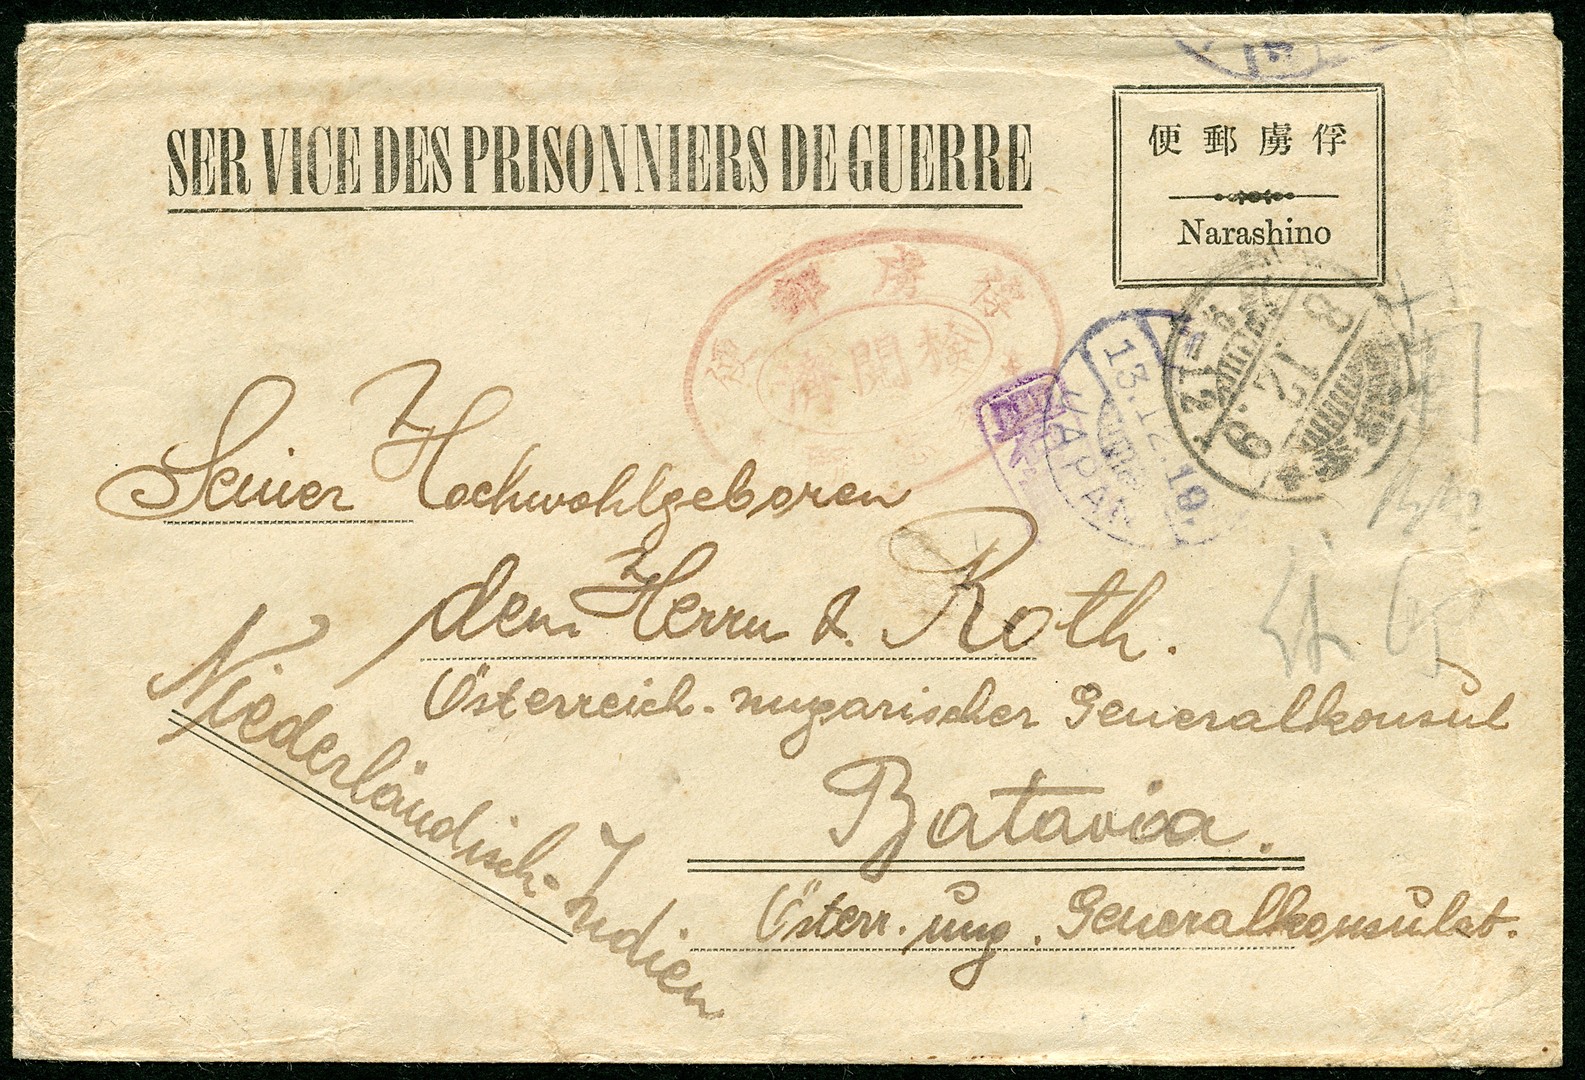 SERVICE DES PRISONNIERS DE GUERRE
便郵虜俘
Narashino
便郵虜俘
濟閲檢
8.12.9
13.12.19.
JAPAN
Seiner Hochwohlgeboren
dem Herrn
Roth.
Österreich-ungarischer Generalkonsul
Batavia.
Österr. ung. Generalkonsulat.
Niederländisch-Indien